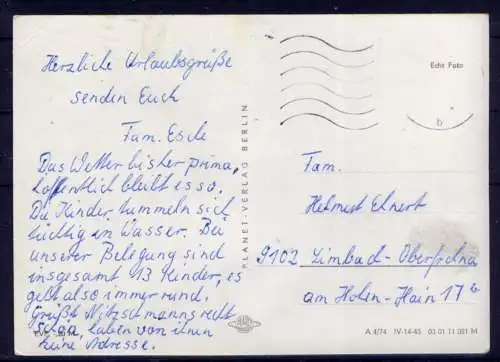 Herzliche Urlaubsgrüße
senden Euch
Fam. Esche
Das Wetter bisher prima,
hoffentlich bleibt es so.
Die Kinder tummeln sich
tüchtig im Wasser. Bei
unserer Belegung sind
insgesamt 13 Kinder, es
geht also immer rund.
Grüßt Nitzschmanns recht
haben von ihnen
keine Adresse.
PLANET-VERLAG BERLIN
Echt Foto
b
Fam.
Helmut Ehnert
9102 Limbach-Oberfrohna
am Hohen-Hain 17b
A 4/74 IV-14-45 03 01 11 081 M